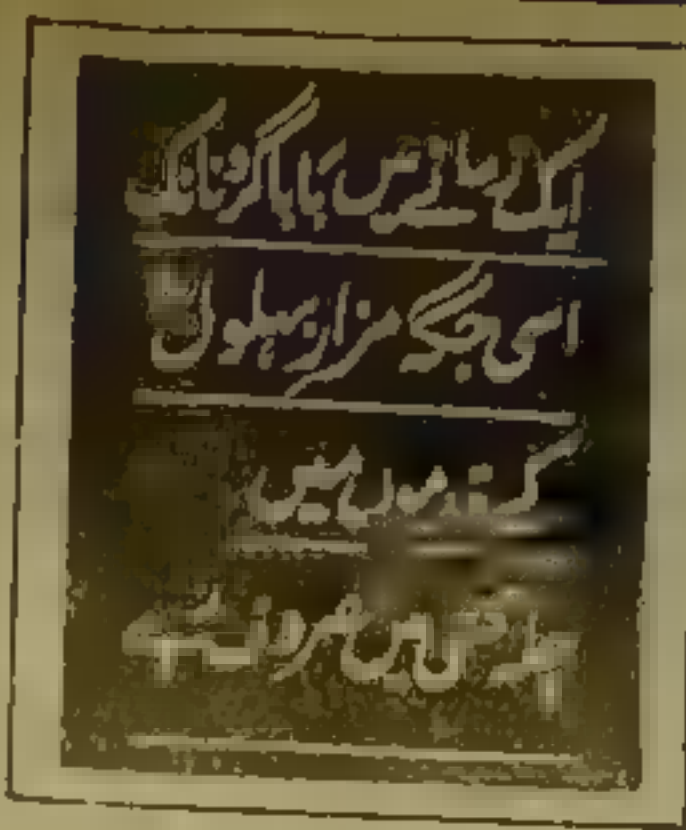 ایک زمانے میں بابا گرو نانک
اسی جگہ مزار بہلول
کے قدموں میں
میں مصروف تھے